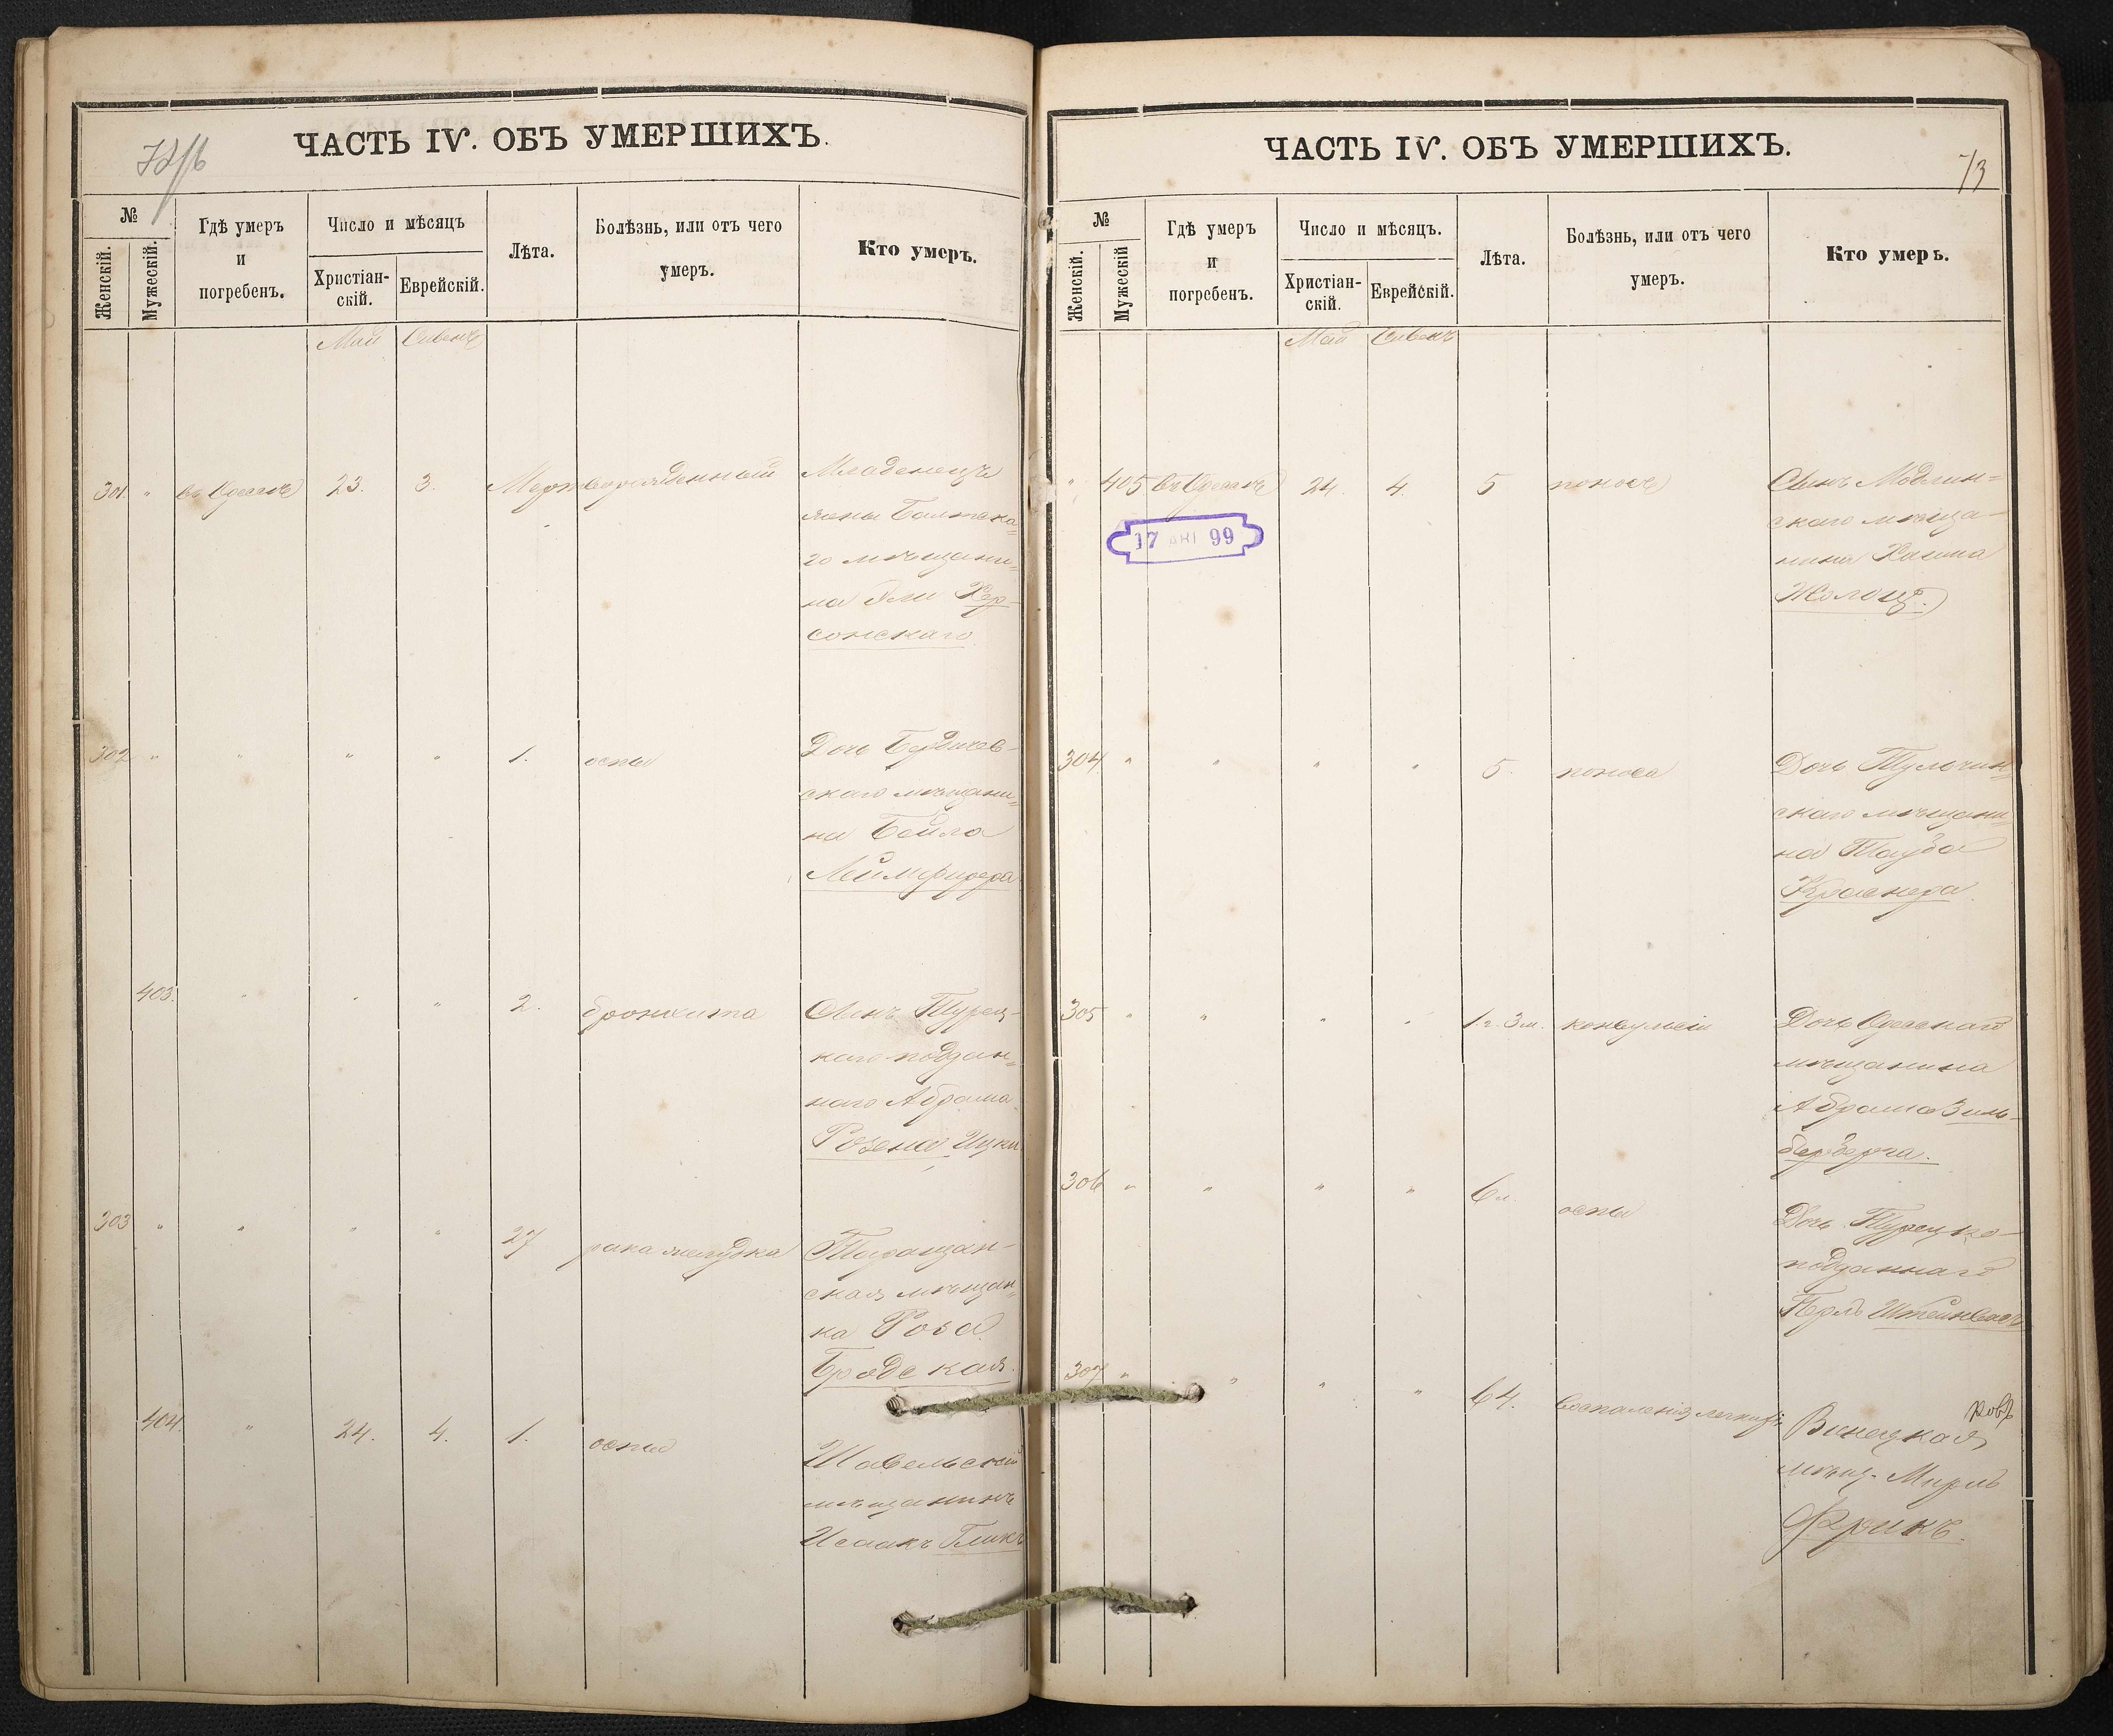 ЧАСТЬ IV. ОБЪ УМЕРШИХЪ.
№
Женскій.
Мужескій.
Гдѣ умеръ
и
погребенъ.
Число и мѣсяцъ
Христіан-
скій.
Еврейскій.
Лѣта.
Болѣзнь, или отъ чего
умеръ.
Кто умеръ.
Май Сивенъ
301. " въ Одессѣ 23. 3. Мертворожденный Младенецъ
жены Балтска=
го мѣщани=
на Эли Хер-
сонскаго
302 " " " " 1. оспы Дочь Бердичев-
скаго мѣщани=
на Бейла
403. " " " 2. бронхита Сынъ Турец-
каго поддан=
наго Абрама
Розена Ицко
303 " " " " 27 рака желудка Таращан-
ская мѣщан=
ка Роза
Бродская.
404. " 24. 4. 1. оспы Шавельскій
мѣщанинъ
Исаакъ Гликъ
ЧАСТЬ IV. ОБЪ УМЕРШИХЪ.
73
№
Женскій.
Мужескій
Гдѣ умеръ
и
погребенъ.
Число и мѣсяцъ.
Христіан-
скій.
Еврейскій.
Лѣта.
Болѣзнь, или отъ чего
умеръ.
Кто умеръ.
Май Сивенъ
" 405 въ Одессѣ 24. 4. 5 поносъ Сынъ Модлин=
скаго мѣща-
нина Хаима
17 АВГ 99
304 " " " " 5. поноса Дочь Тульчин=
скаго мѣщани=
на Тауба
Краснера
305 " " " " 1 г. 3 м. конвульсіи Дочь Одесскаго
мѣщанина
Абрама Зиль-
берберга.
306 " " " " 6 л. оспы Дочь Турецко-
подданнаго
Перль Штейнбергъ
307 " " " " 64. воспаленія легкихъ Виницкая
мѣщ. Мирль
Фрикъ.